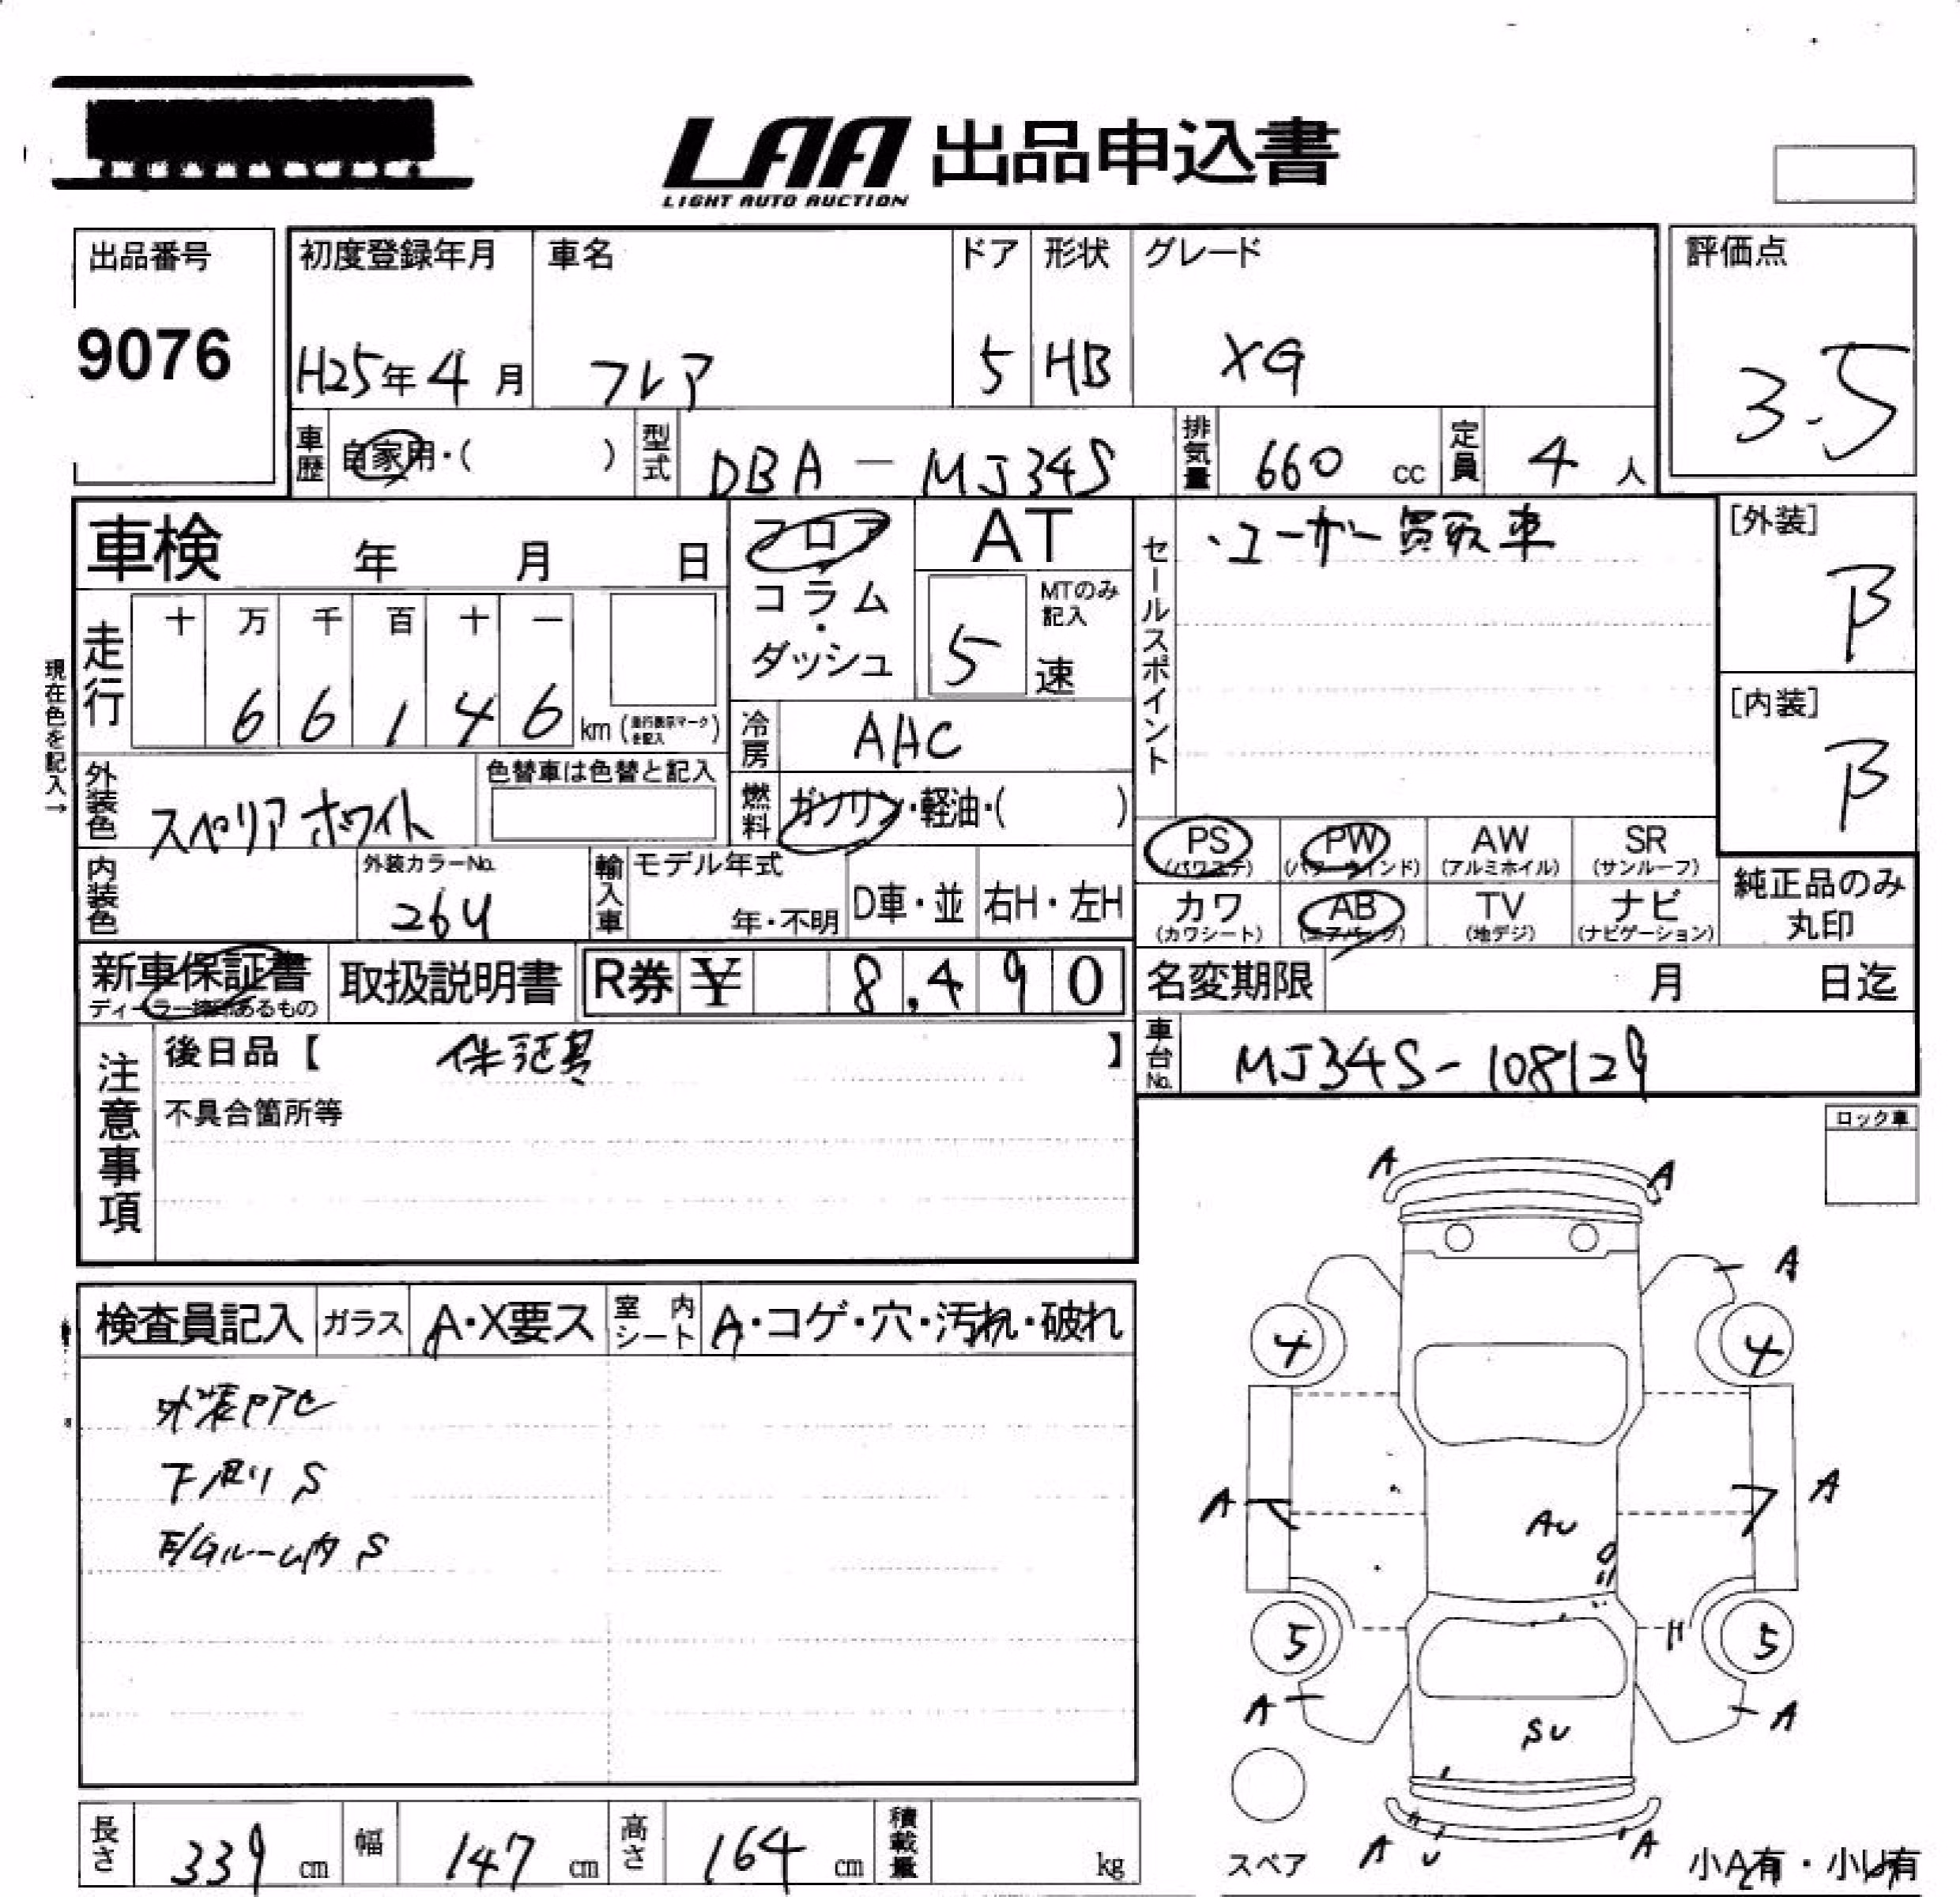 LAA 出品申込書
LIGHT AUTO AUCTION
出品番号
9076
初度登録年月
H25年4月
車名
フレア
ドア
5
形状
HB
グレード
XG
評価点
3.5
車歴
自家用・( )
型式
DBA-MJ34S
排気量
660 cc
定員
4 人
車検 年 月 日
フロア
コラム
・
ダッシュ
AT
MTのみ記入
5 速
セールスポイント
・ユーザー買取車
[外装]
B
[内装]
B
現在色を記入→
走行
十 万 千 百 十 一
6 6 1 4 6 km (走行表示マークを記入)
冷房
AAC
燃料
ガソリン・軽油・( )
外装色
スペリアホワイト
色替車は色替と記入
内装色
外装カラーNo.
26U
輸入車
モデル年式
年・不明
D車・並
右H・左H
PS
(パワステ)
PW
(パワーウインド)
AW
(アルミホイル)
SR
(サンルーフ)
カワ
(カワシート)
AB
(エアバック)
TV
(地デジ)
ナビ
(ナビゲーション)
純正品のみ
丸印
新車保証書
ディーラー捺印あるもの
取扱説明書
R券 ¥ 8,490
名変期限 月 日迄
注意事項
後日品【 保証書 】
不具合箇所等
車台No.
MJ34S-108129
ロック車
検査員記入
ガラス
A・X要ス
室内シート
A・コゲ・穴・汚れ・破れ
下廻りS
E/Gルーム内S
A
A
A
4
4
A
A
AU
5
5
A
A
SU
A
U
A
スペア
小A有・小U有
長さ
339 cm
幅
147 cm
高さ
164 cm
積載量
kg